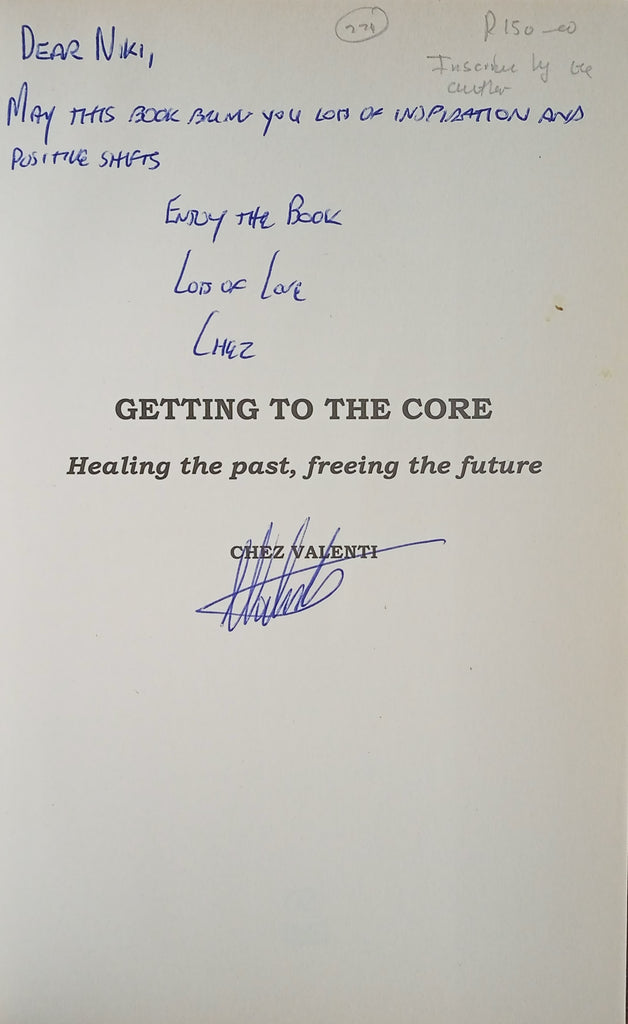 224
R150-00
Inscribed by the
author
DEAR NIKI,
MAY THIS BOOK BRING YOU LOTS OF INSPIRATION AND
POSITIVE SHIFTS
ENJOY THE BOOK
LOTS OF LOVE
CHEZ
GETTING TO THE CORE
Healing the past, freeing the future
CHEZ VALENTI